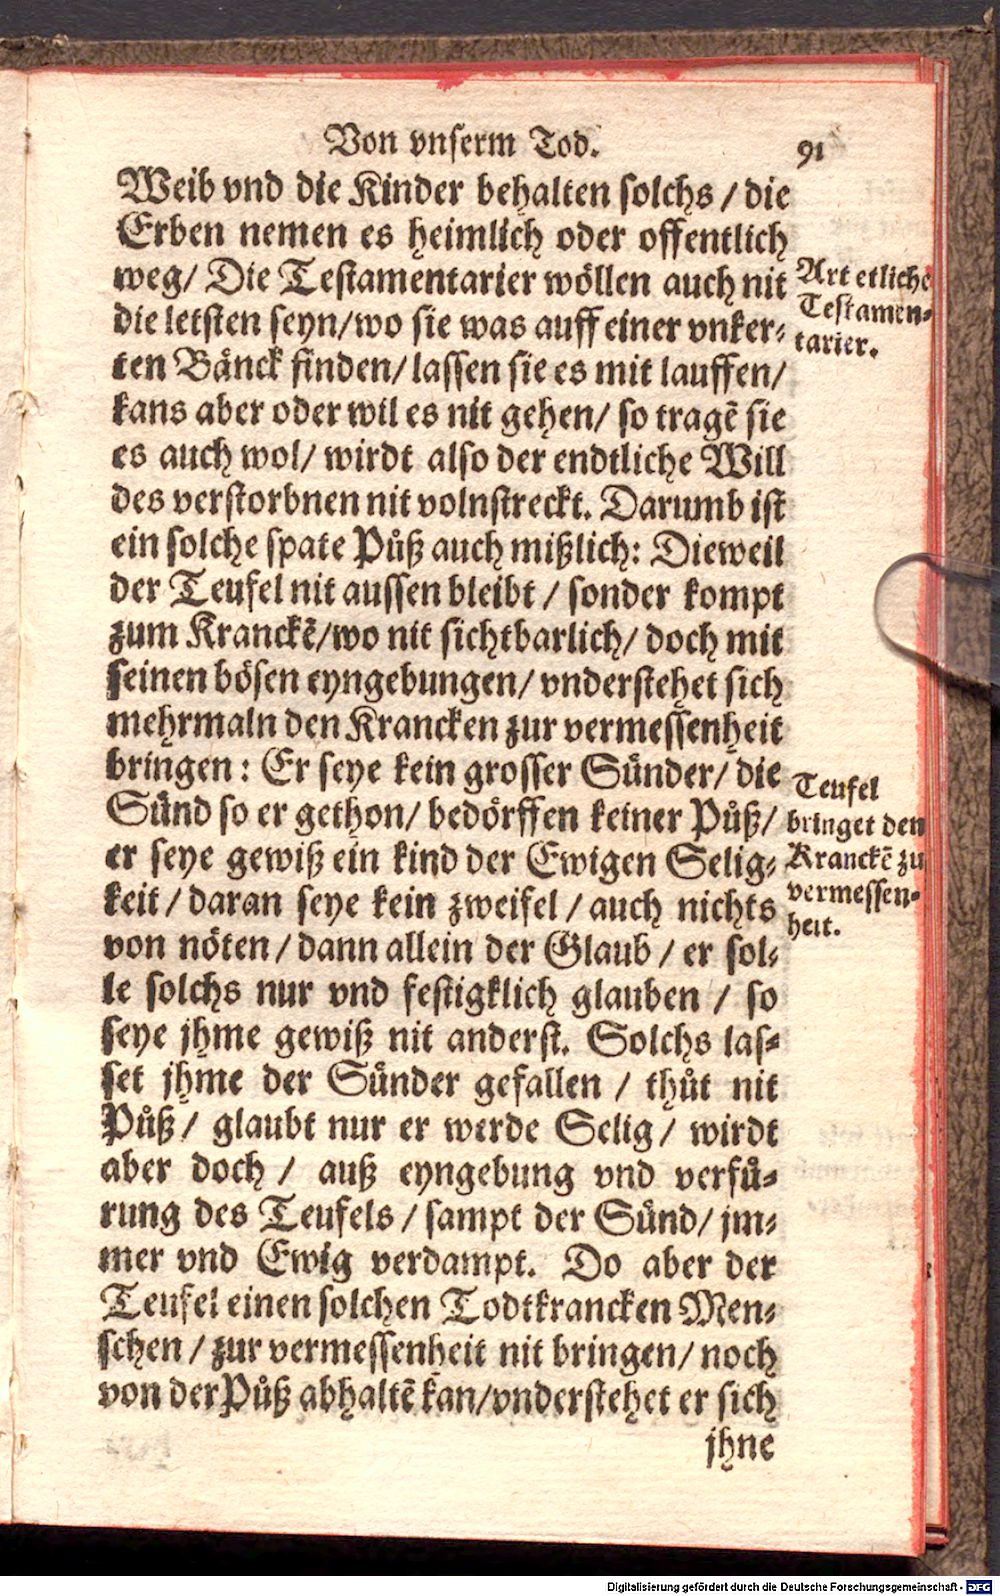 Von vnserm Tod. 91
Weib vnd die Kinder behalten solchs / die
Erben nemen es heimlich oder offentlich
weg/ Die Testamentarier wöllen auch nit
die letsten seyn/wo sie was auff einer vnker-
ten Bänck finden/ lassen sie es mit lauffen/
kans aber oder wil es nit gehen/ so tragē sie
es auch wol/ wirdt also der endtliche Will
des verstorbnen nit volnstreckt. Darumb ist
ein solche spate Půß auch mißlich: Dieweil
der Teufel nit aussen bleibt / sonder kompt
zum Kranckē/wo nit sichtbarlich/ doch mit
seinen bösen eyngebungen/ vnderstehet sich
mehrmaln den Krancken zur vermessenheit
bringen: Er seye kein grosser Sünder/ die
Sünd so er gethon/ bedörffen keiner Půß/
er seye gewiß ein kind der Ewigen Selig-
keit / daran seye kein zweifel / auch nichts
von nöten / dann allein der Glaub / er sol-
le solchs nur vnd festigklich glauben / so
seye jhme gewiß nit anderst. Solchs las-
set jhme der Sünder gefallen / thůt nit
Půß / glaubt nur er werde Selig / wirdt
aber doch / auß eyngebung vnd verfů-
rung des Teufels / sampt der Sünd/ jm-
mer vnd Ewig verdampt. Do aber der
Teufel einen solchen Todtkrancken Men-
schen / zur vermessenheit nit bringen/ noch
von der Půß abhaltē kan/vnderstehet er sich
jhne
Art etliche
Testamen-
tarier.
Teufel
bringet den
Kranckē zu
vermessen-
heit.
Digitalisierung gefördert durch die Deutsche Forschungsgemeinschaft - DFG